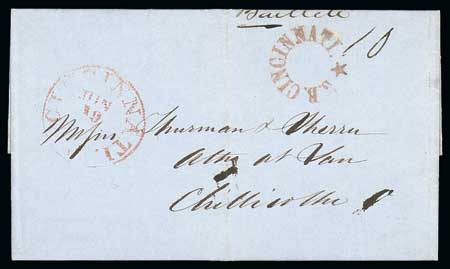 S.B. CINCINNATI.
10
CINCINNATI.
JUL
19
Messrs Thurman & Sherer
Attys at Law
Chillicothe O